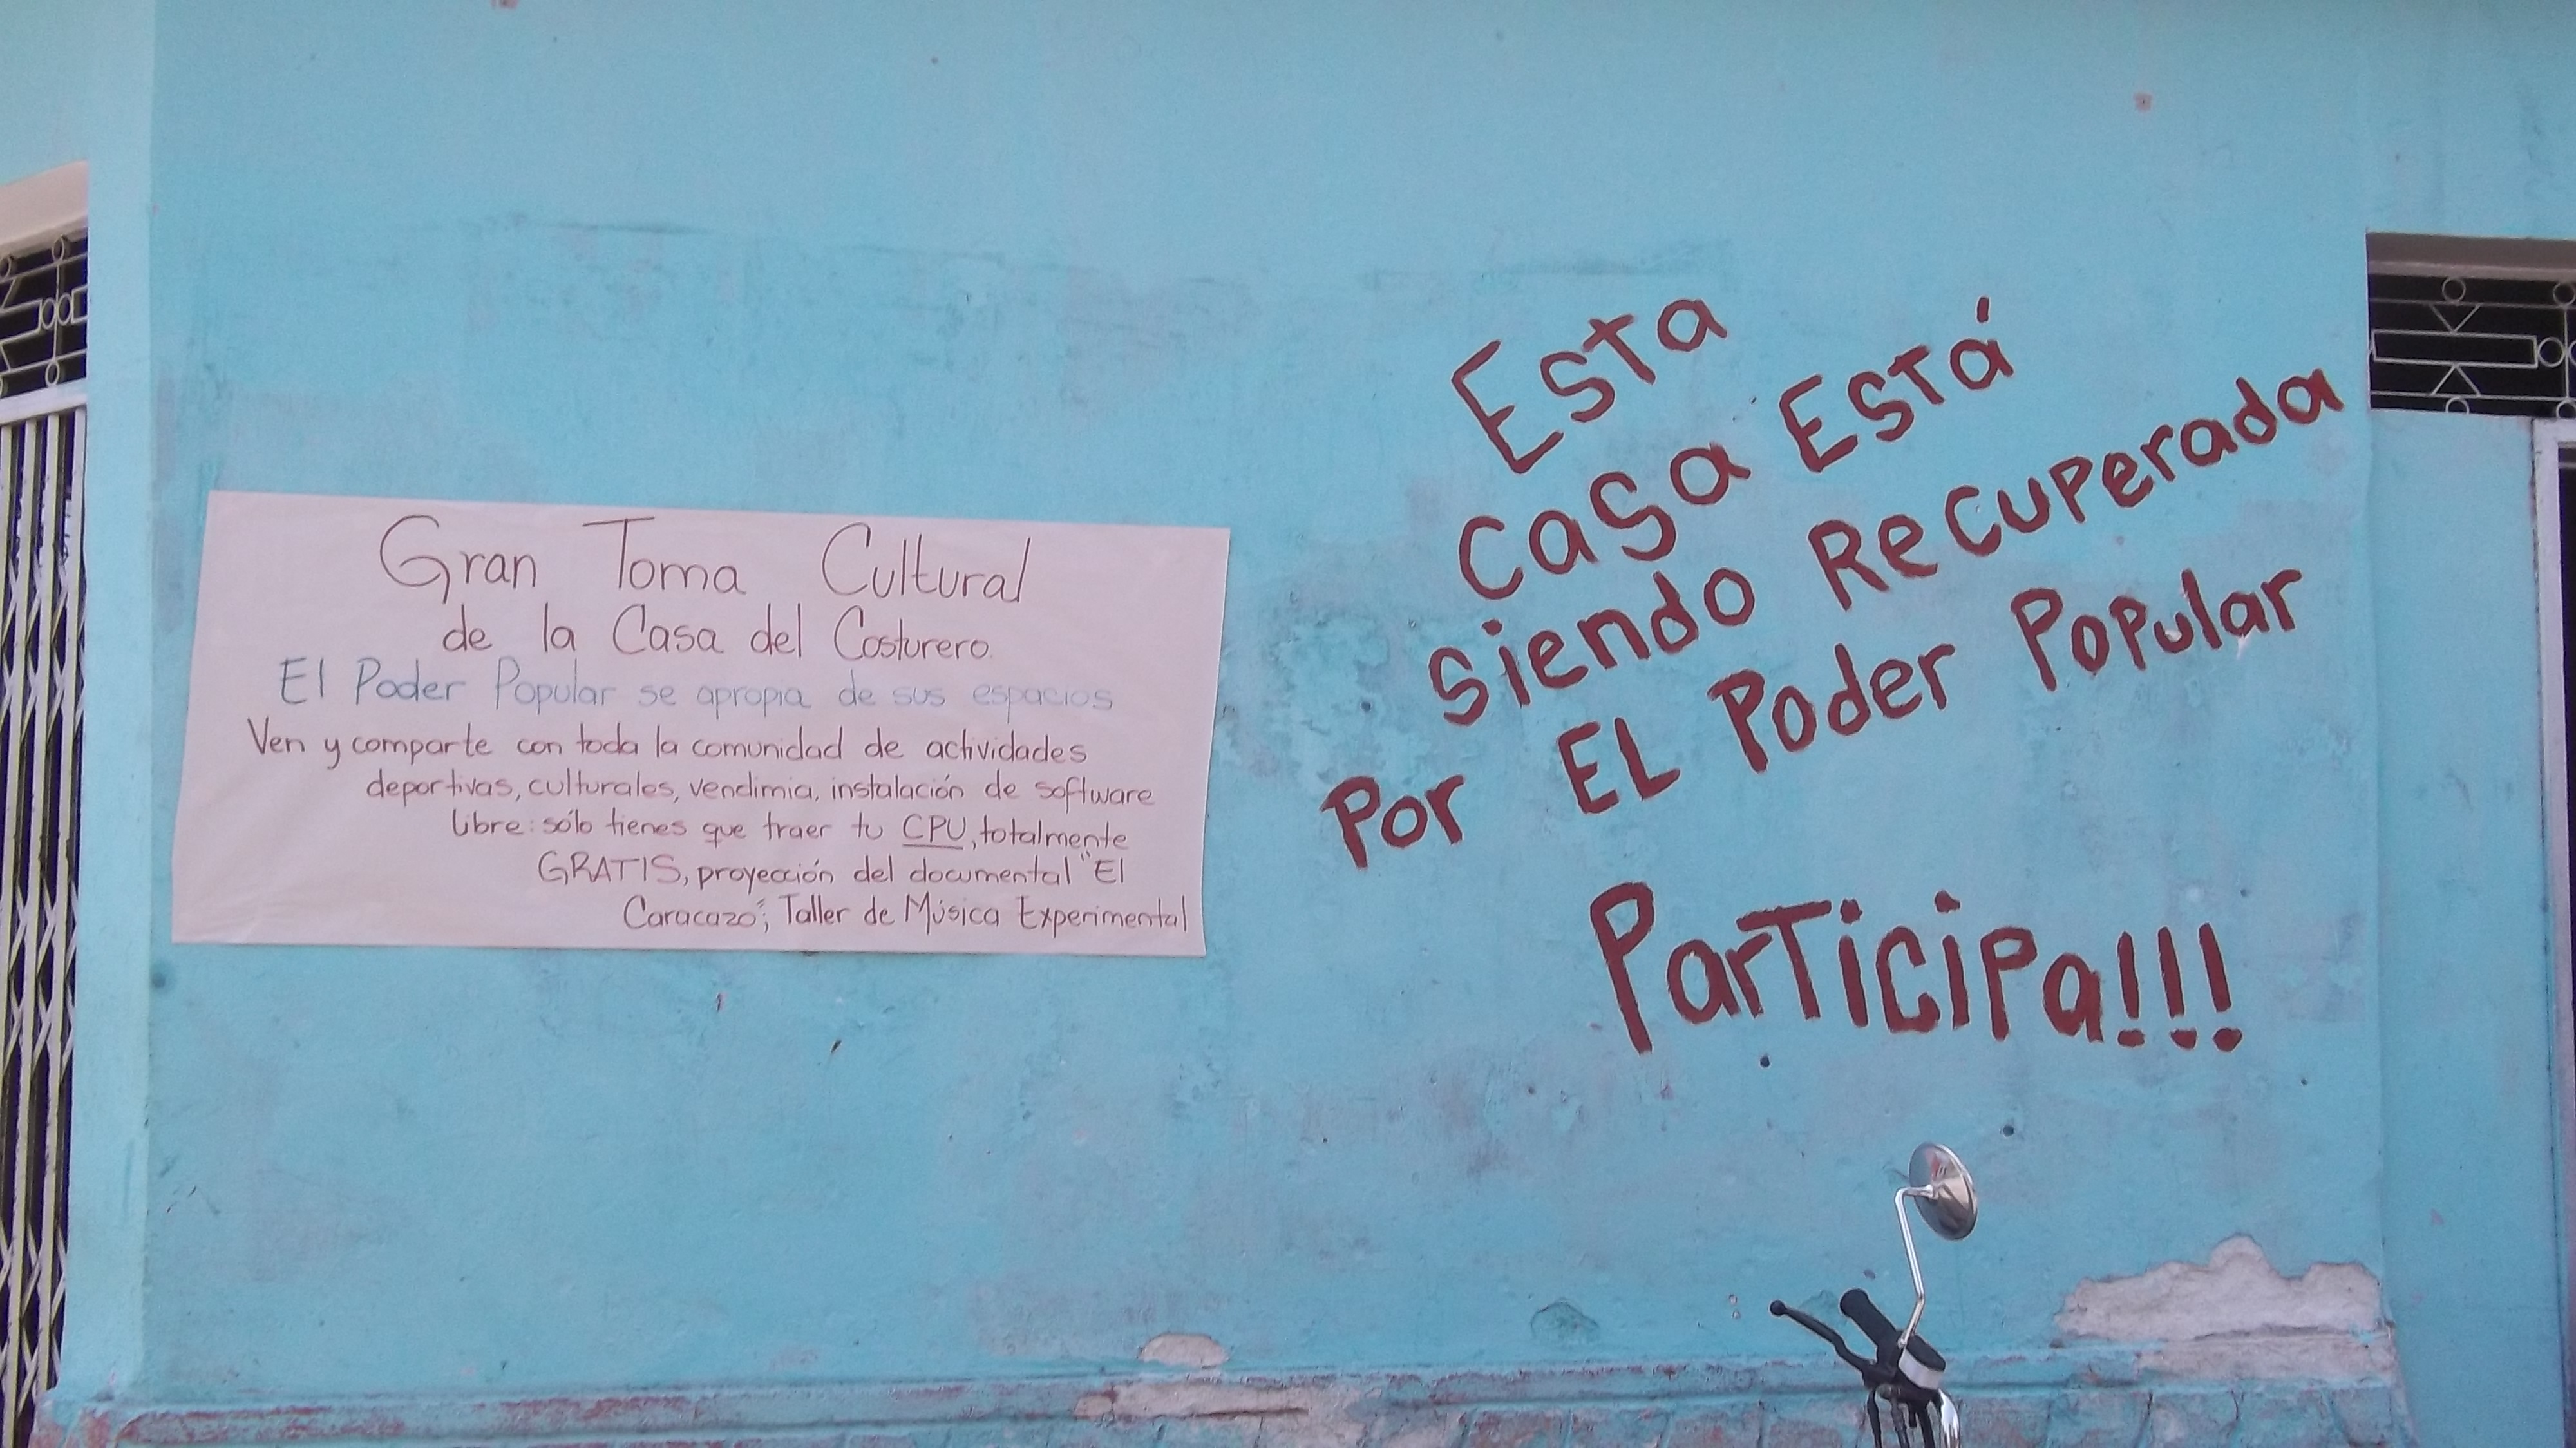 Gran Toma Cultural
de la Casa del Costurero.
El Poder Popular se apropia de sus espacios
Ven y comparte con toda la comunidad de actividades
deportivas, culturales, vendimia, instalación de software
libre: sólo tienes que traer tu CPU, totalmente
GRATIS, proyección del documental "El
Caracazo"; Taller de Música Experimental
Esta
casa Está
siendo Recuperada
Por EL Poder Popular
Participa!!!